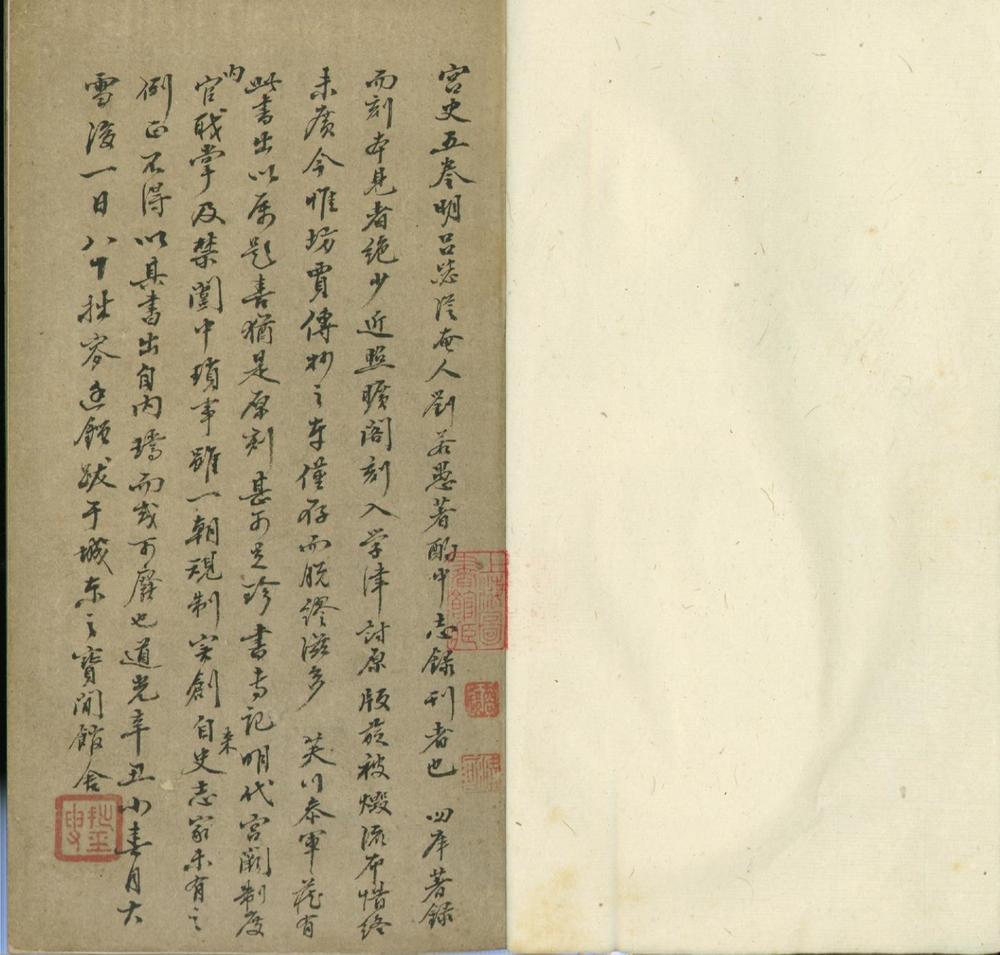 宮史五卷明呂毖從奄人劉若愚著酌中志錄刊者也 四庫著錄
而刻本見者絶少近照曠閣刻入学津討原版旋被燬流布惜終
未廣今惟坊賈傳抄之本僅存而脱繆滋多 芙川叅軍藏有
此書出以屬題喜猶是原刻甚可足珍書專記明代宮闕制度
内官職掌及禁闥中瑣事雖一朝規制实創自来史志家未有之
例正不得以其書出自内璫而或可廢也道光辛丑小春月大
雪後一日八十拙叟錢跋于城东之寶閒館舍
上海圖書館臧